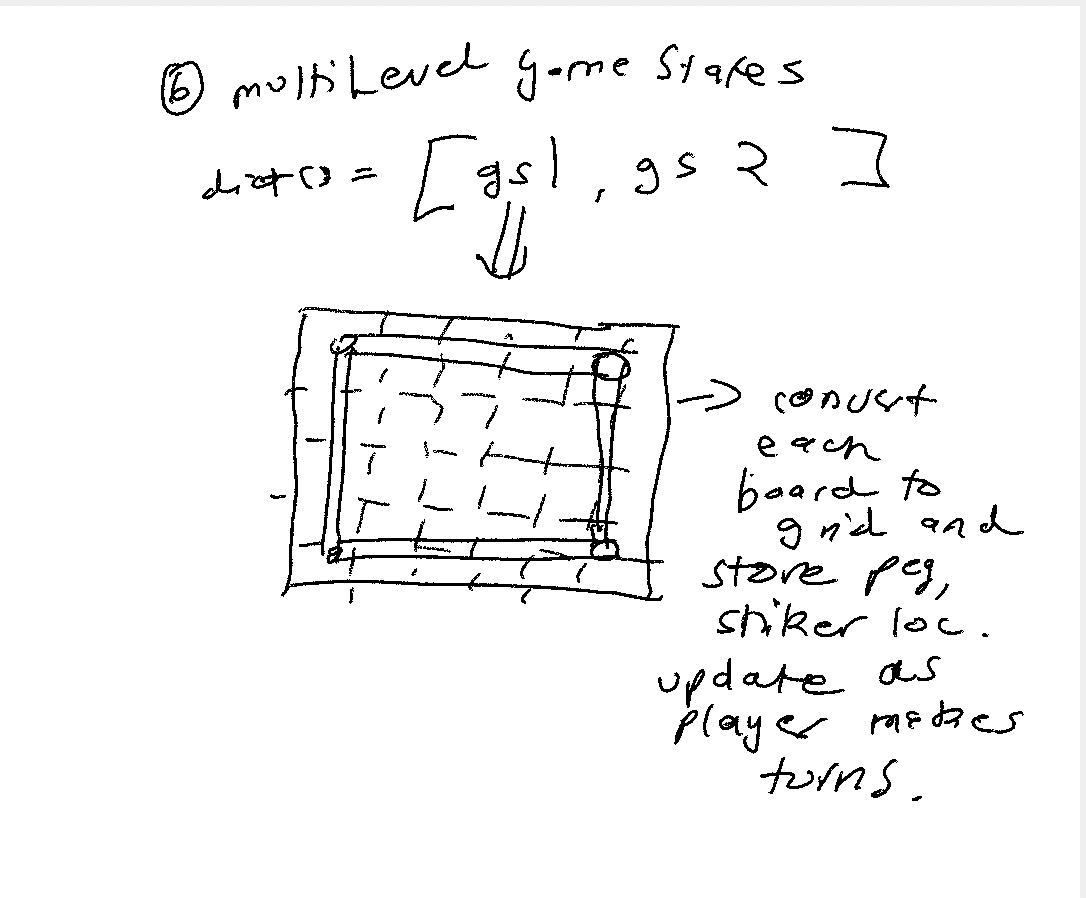 ⑥ multiLevel game States
dict() = [gs1, gs 2 ]
convert
each
board to
grid and
store peg,
striker loc.
update as
player makes
turns.